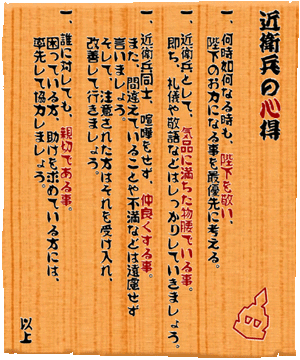 近衛兵の心得
一、何時如何なる時も、陛下を敬い、
陛下のお力になる事を最優先に考える。
一、近衛兵として、気品に満ちた物腰でいる事。
即ち、礼儀や敬語などはしっかりしていきましょう。
一、近衛兵同士、喧嘩をせず、仲良くする事。
また、間違えていることや不満などは遠慮せず
言いましょう。
そして、注意された方はそれを受け入れ、
改善して行きましょう。
一、誰に対しても、親切である事。
困っている方、助けを求めている方には、
率先して協力しましょう。
以上